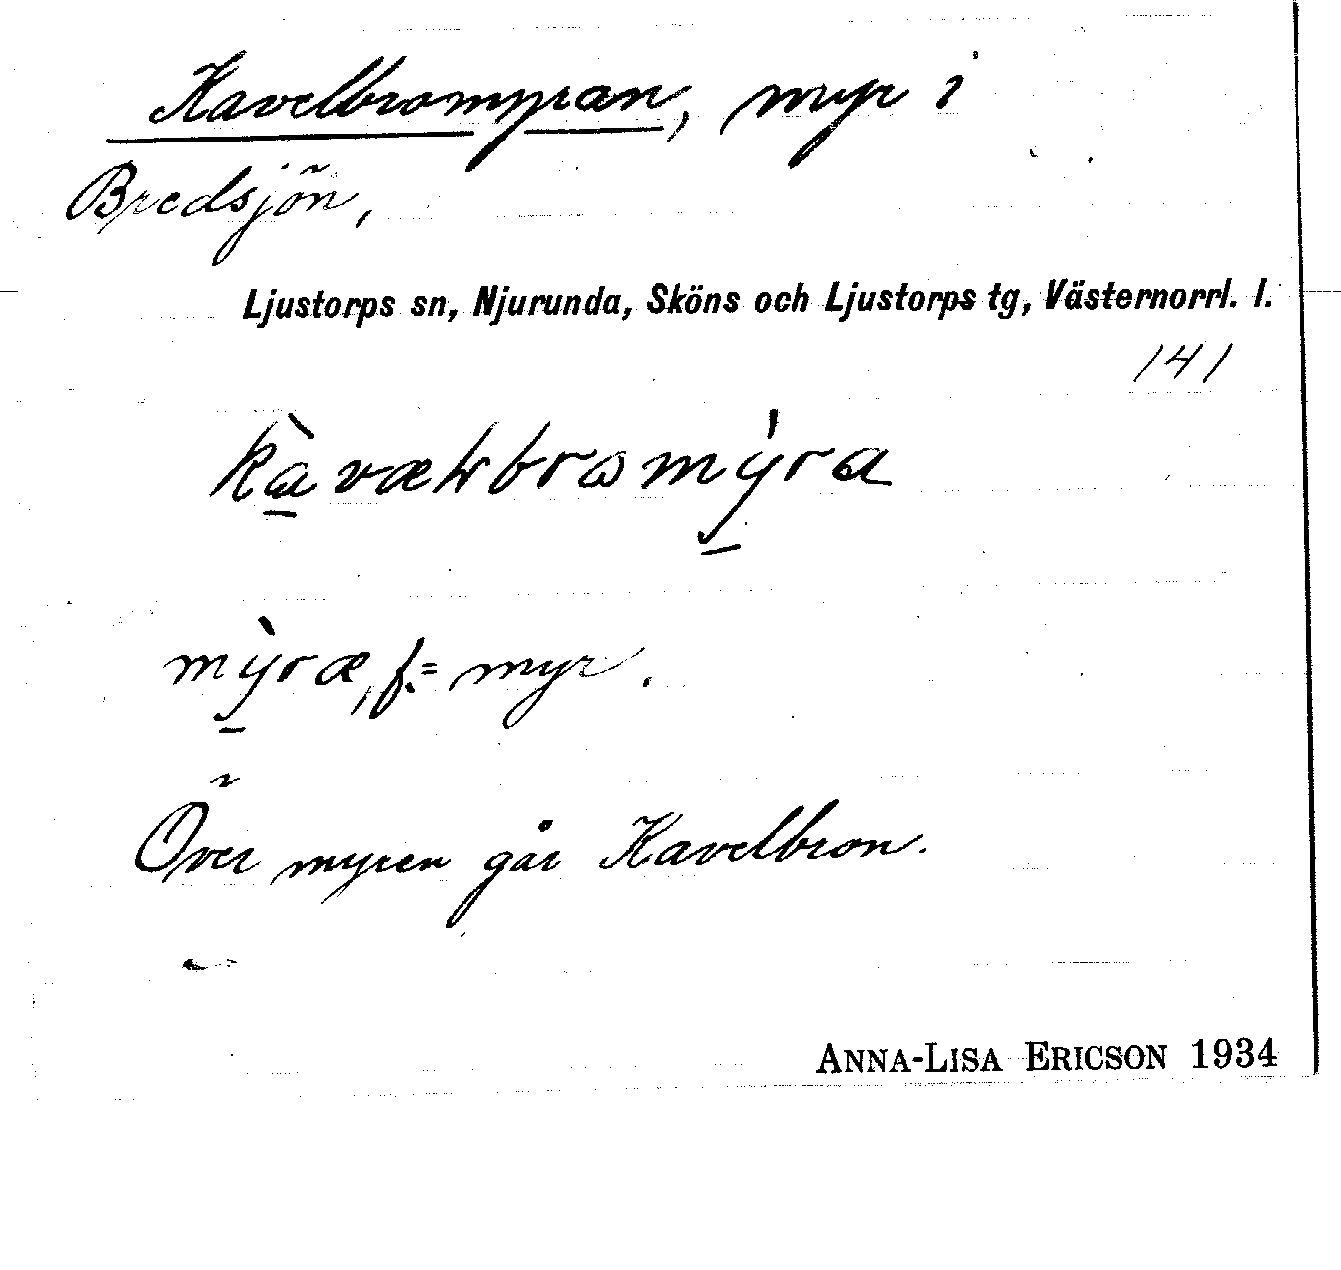 Kavelbromyran, myr i
Bredsjön,
Ljustorps sn, Njurunda, Sköns och Ljustorps tg, Västernorrl. l.
141
mỳræ, f. = myr.
Över myren går Kavelbron.
ANNA-LISA ERICSON 1934